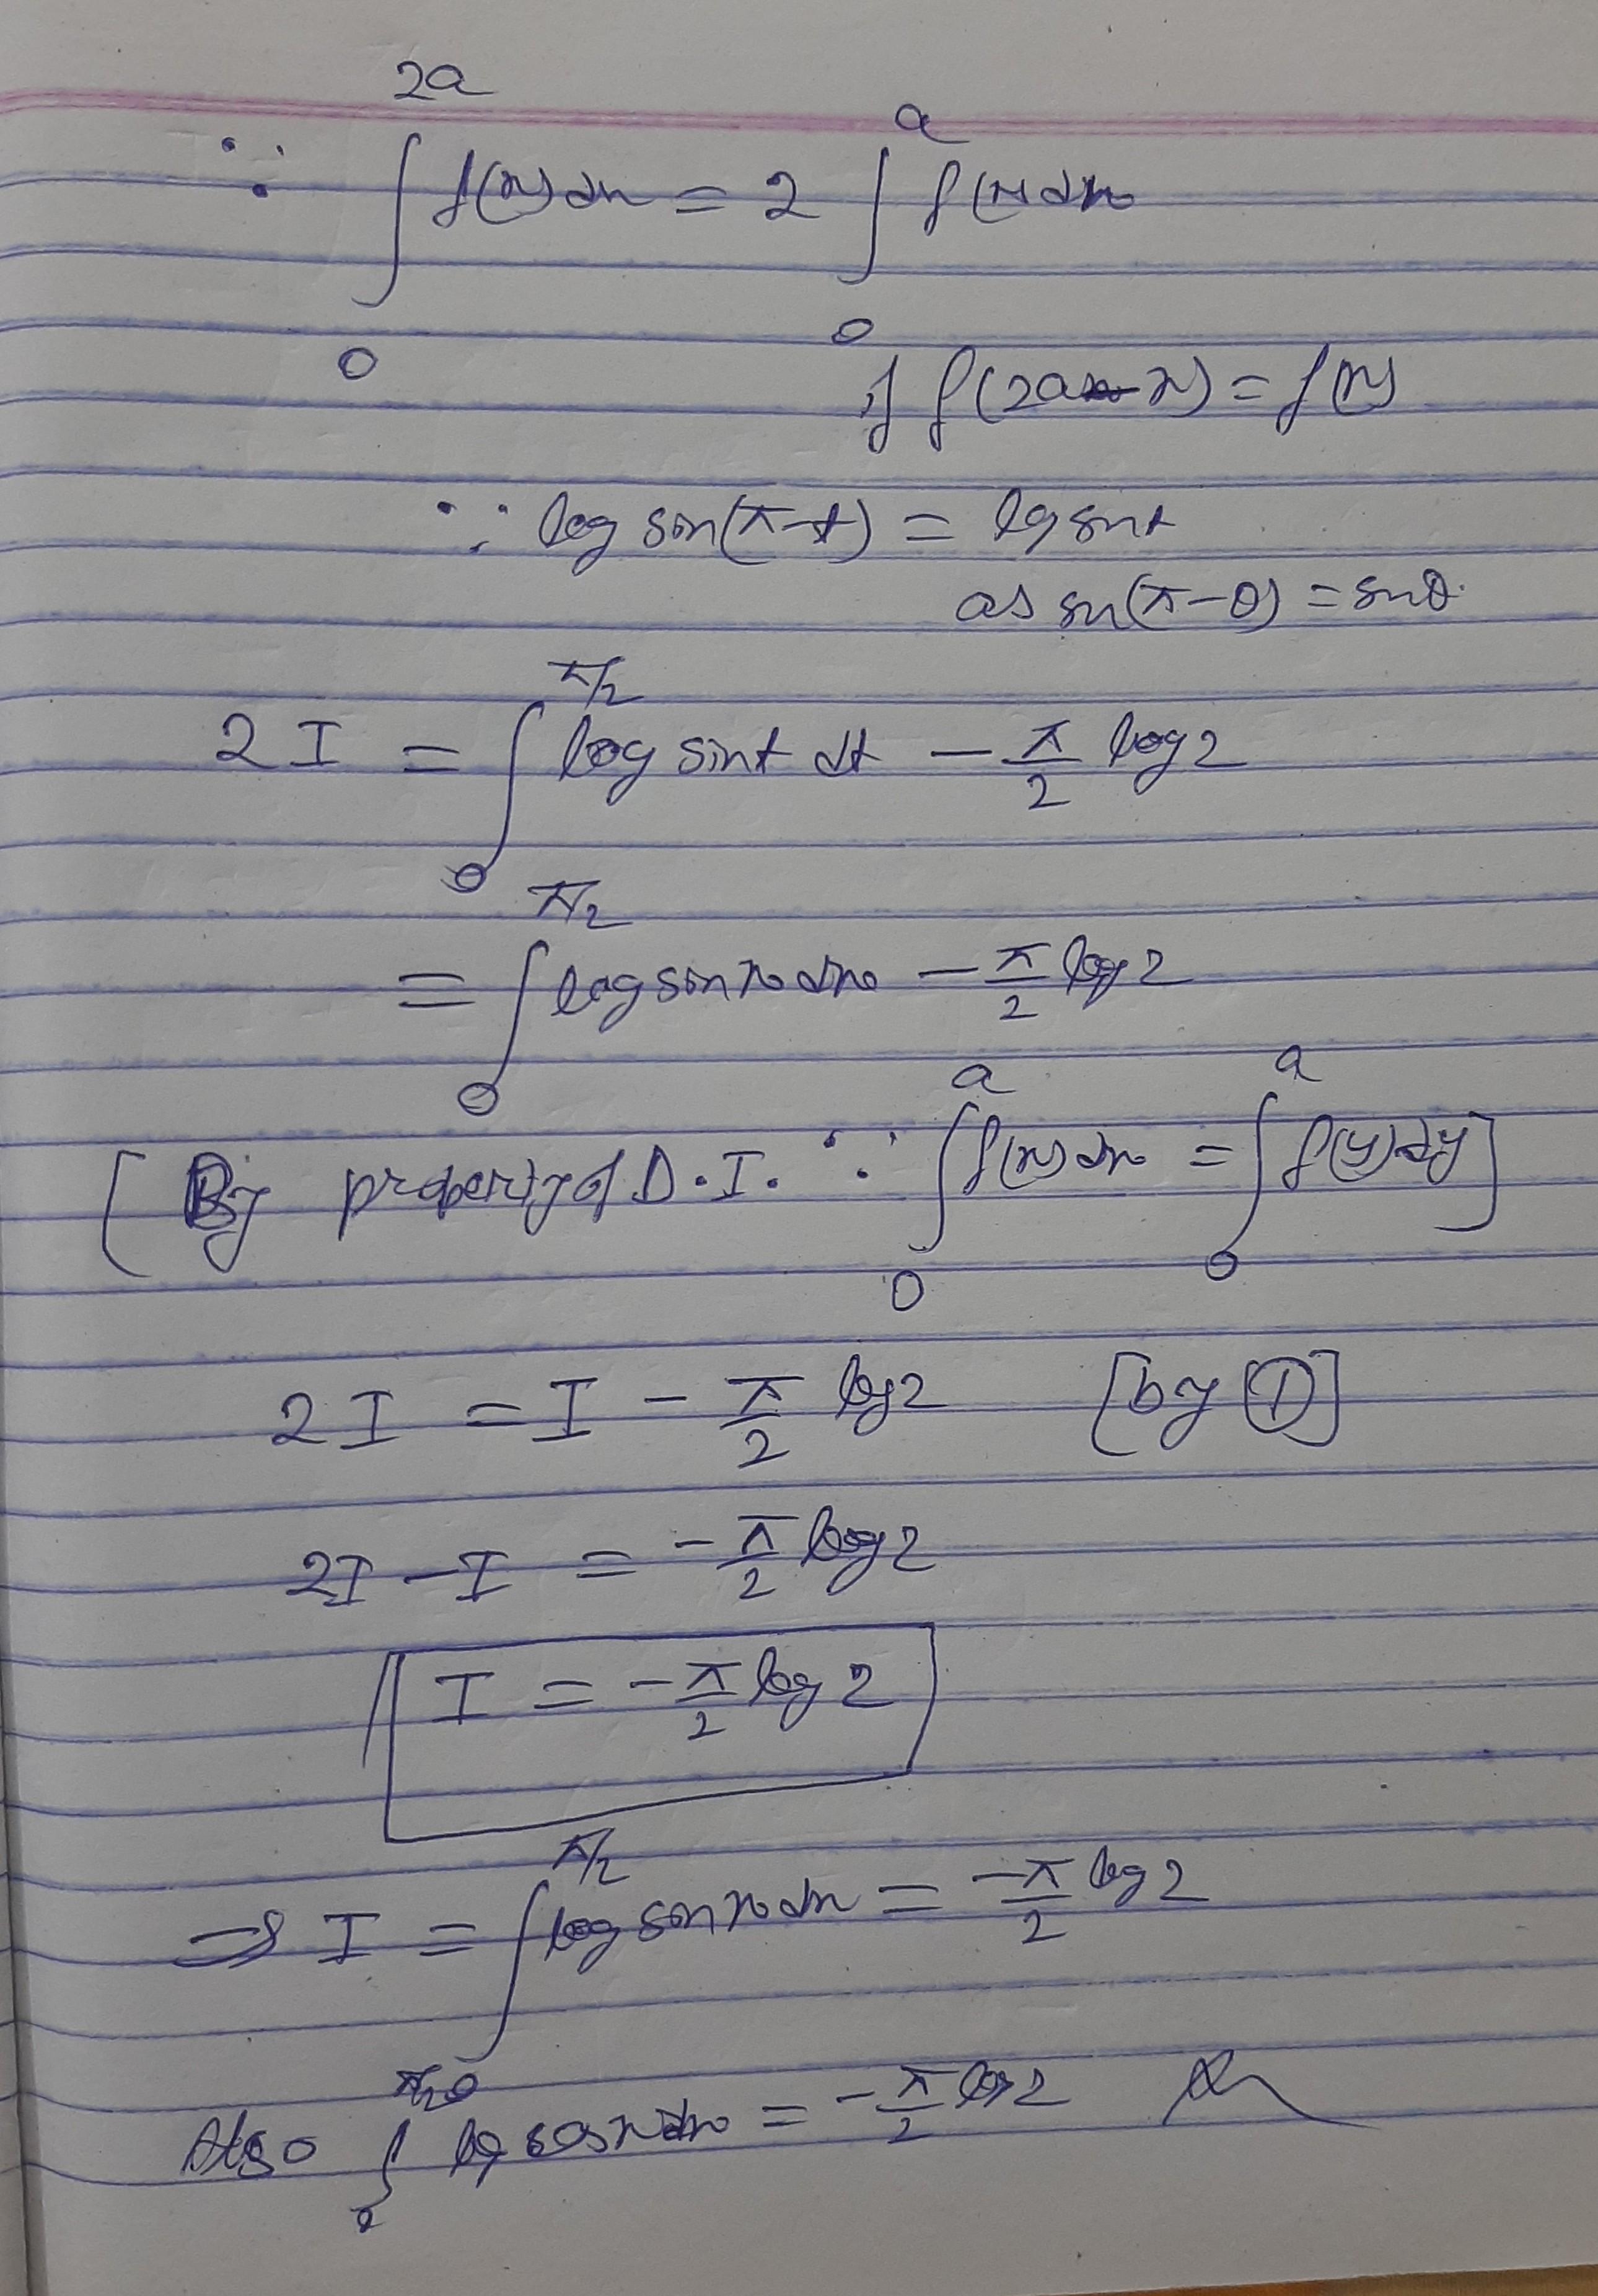 ∵ ∫₀^{2a} f(x) dx = 2 ∫₀^{a} f(x) dx
if f(2a-x) = f(x)
∵ log sin(π-t) = log sint
as sin(π-θ) = sinθ.
2 I = ∫₀^{π/2} log sint dt - π/2 log 2
= ∫₀^{π/2} log sin x dx - π/2 log 2
[By property of D.I. ∵ ∫₀^{a} f(x) dx = ∫₀^{a} f(y) dy]
2 I = I - π/2 log 2 [by ①]
2I - I = - π/2 log 2
I = - π/2 log 2
⇒ I = ∫₀^{π/2} log sin x dx = -π/2 log 2
Also ∫₀^{π/2} log cos x dx = - π/2 log 2